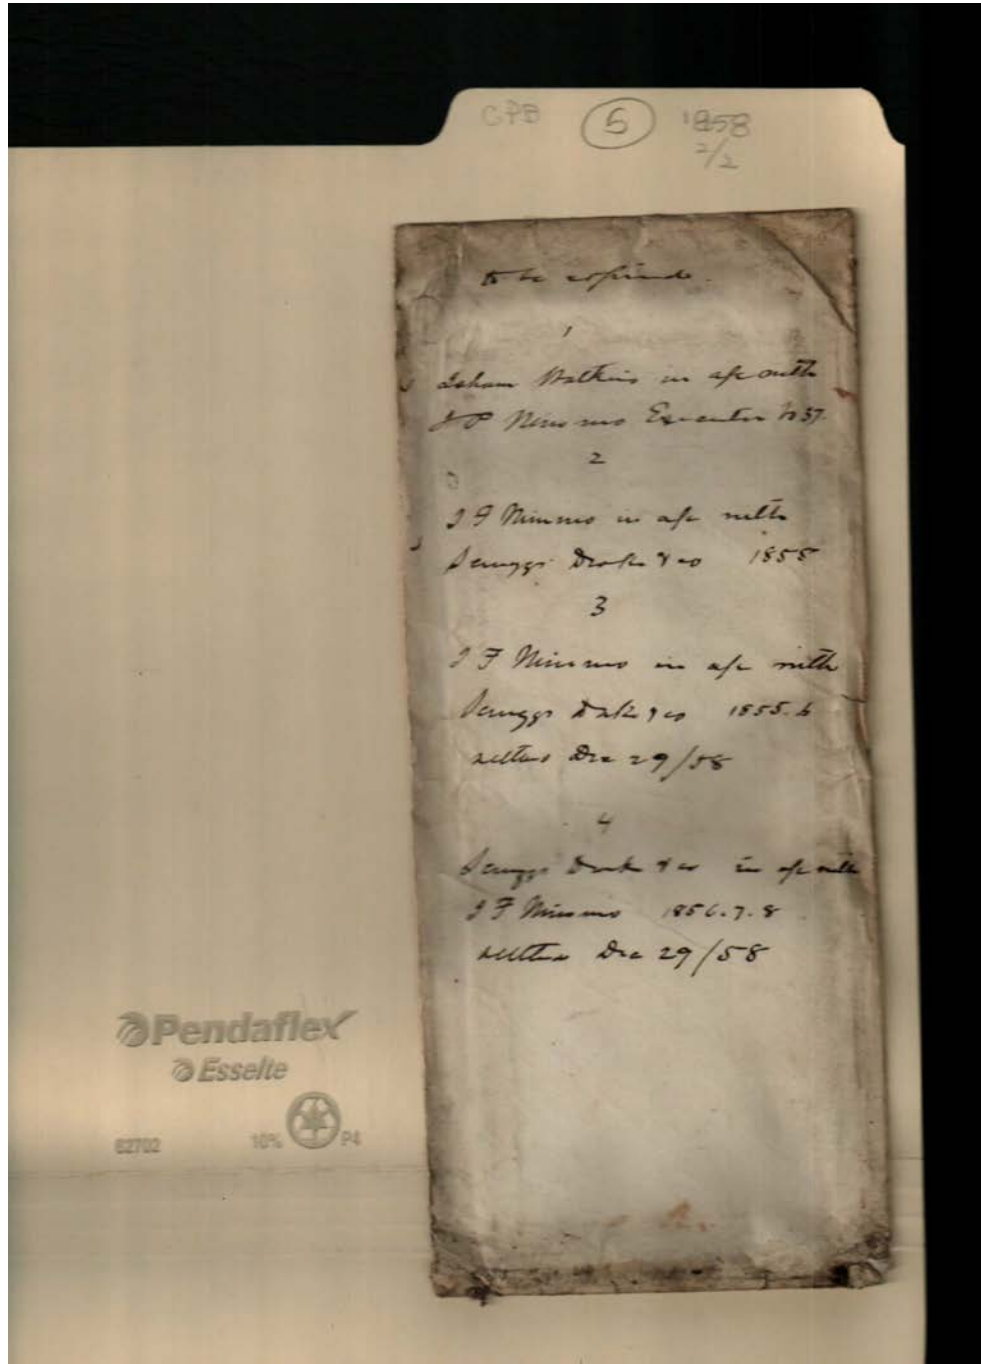 CPB 5 1858
2/2
to be
1
Isham Watkins in a/c with
Nimmo Executor
2
J F Nimmo in a/c with
Scruggs Drake & co 1855
3
J F Nimmo in a/c with
Scruggs Drake & co 1855.6
Dec 29/58
4
Scruggs Drake & co in a/c with
J F Nimmo 1856.7.8
Dec 29/58
Pendaflex
Esselte
62702 10% P4